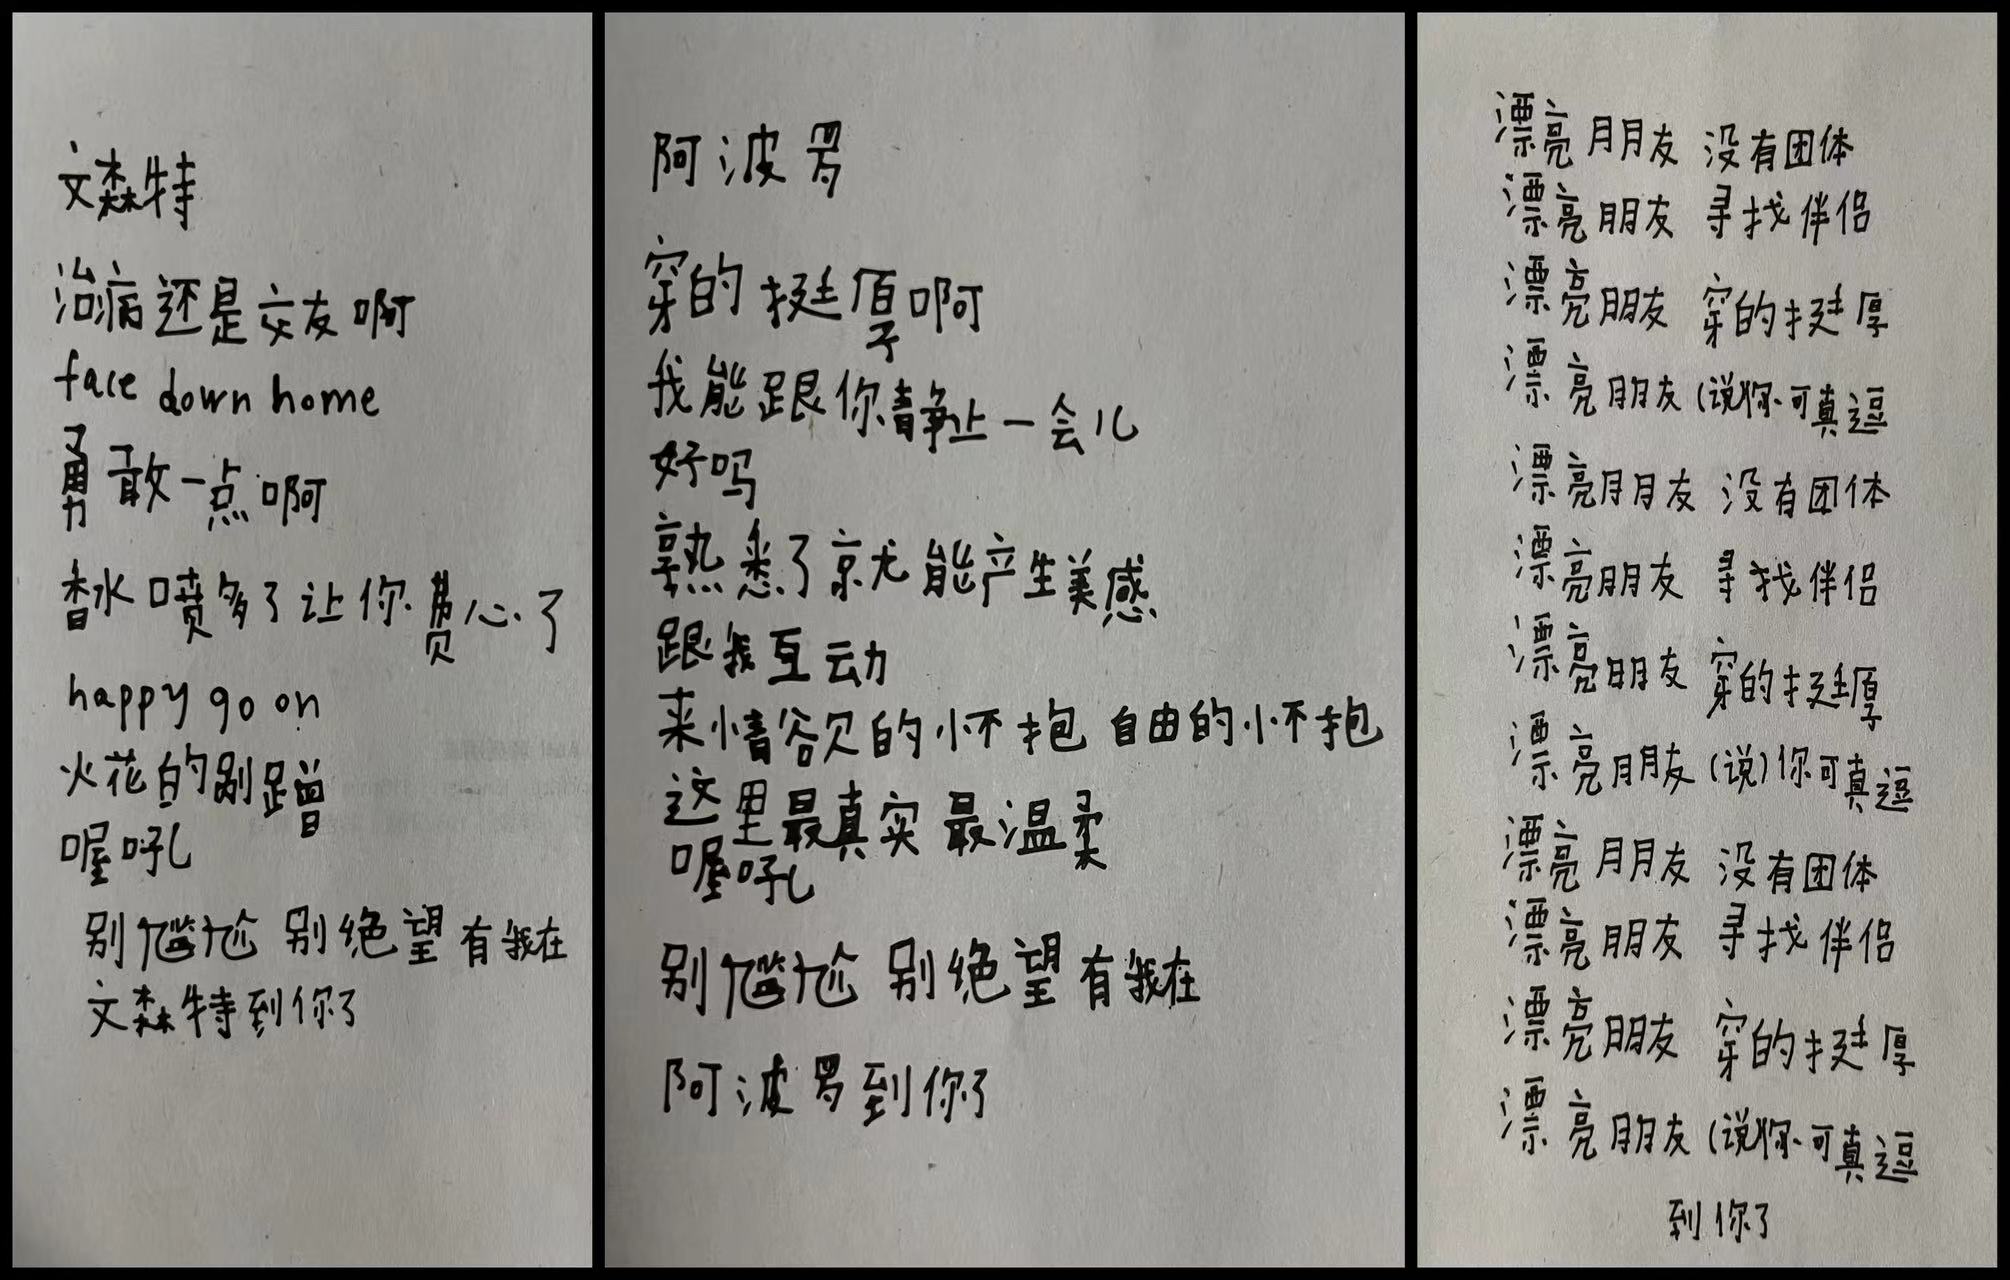 文森特
治病还是交友啊
face down home
勇敢一点啊
香水喷多了让你费心了
happy go on
火花的别蹭
喔吼
别尴尬 别绝望 有我在
文森特到你了
阿波罗
穿的挺厚啊
我能跟你静止一会儿
好吗
熟悉了就能产生美感
跟我互动
来情欲的怀抱 自由的怀抱
这里最真实 最温柔
喔吼
别尴尬 别绝望 有我在
阿波罗到你了
漂亮朋友 没有团体
漂亮朋友 寻找伴侣
漂亮朋友 穿的挺厚
漂亮朋友 (说)你可真逗
漂亮朋友 没有团体
漂亮朋友 寻找伴侣
漂亮朋友 穿的挺厚
漂亮朋友 (说)你可真逗
漂亮朋友 没有团体
漂亮朋友 寻找伴侣
漂亮朋友 穿的挺厚
漂亮朋友 (说)你可真逗
到你了